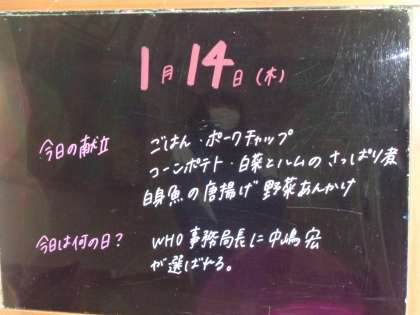 1月14日(木)
今日の献立 ごはん・ポークチャップ
コーンポテト・白菜とハムのさっぱり煮
白身魚の唐揚げ 野菜あんかけ
今日は何の日? WHO事務局長に中嶋宏
が選ばれる。